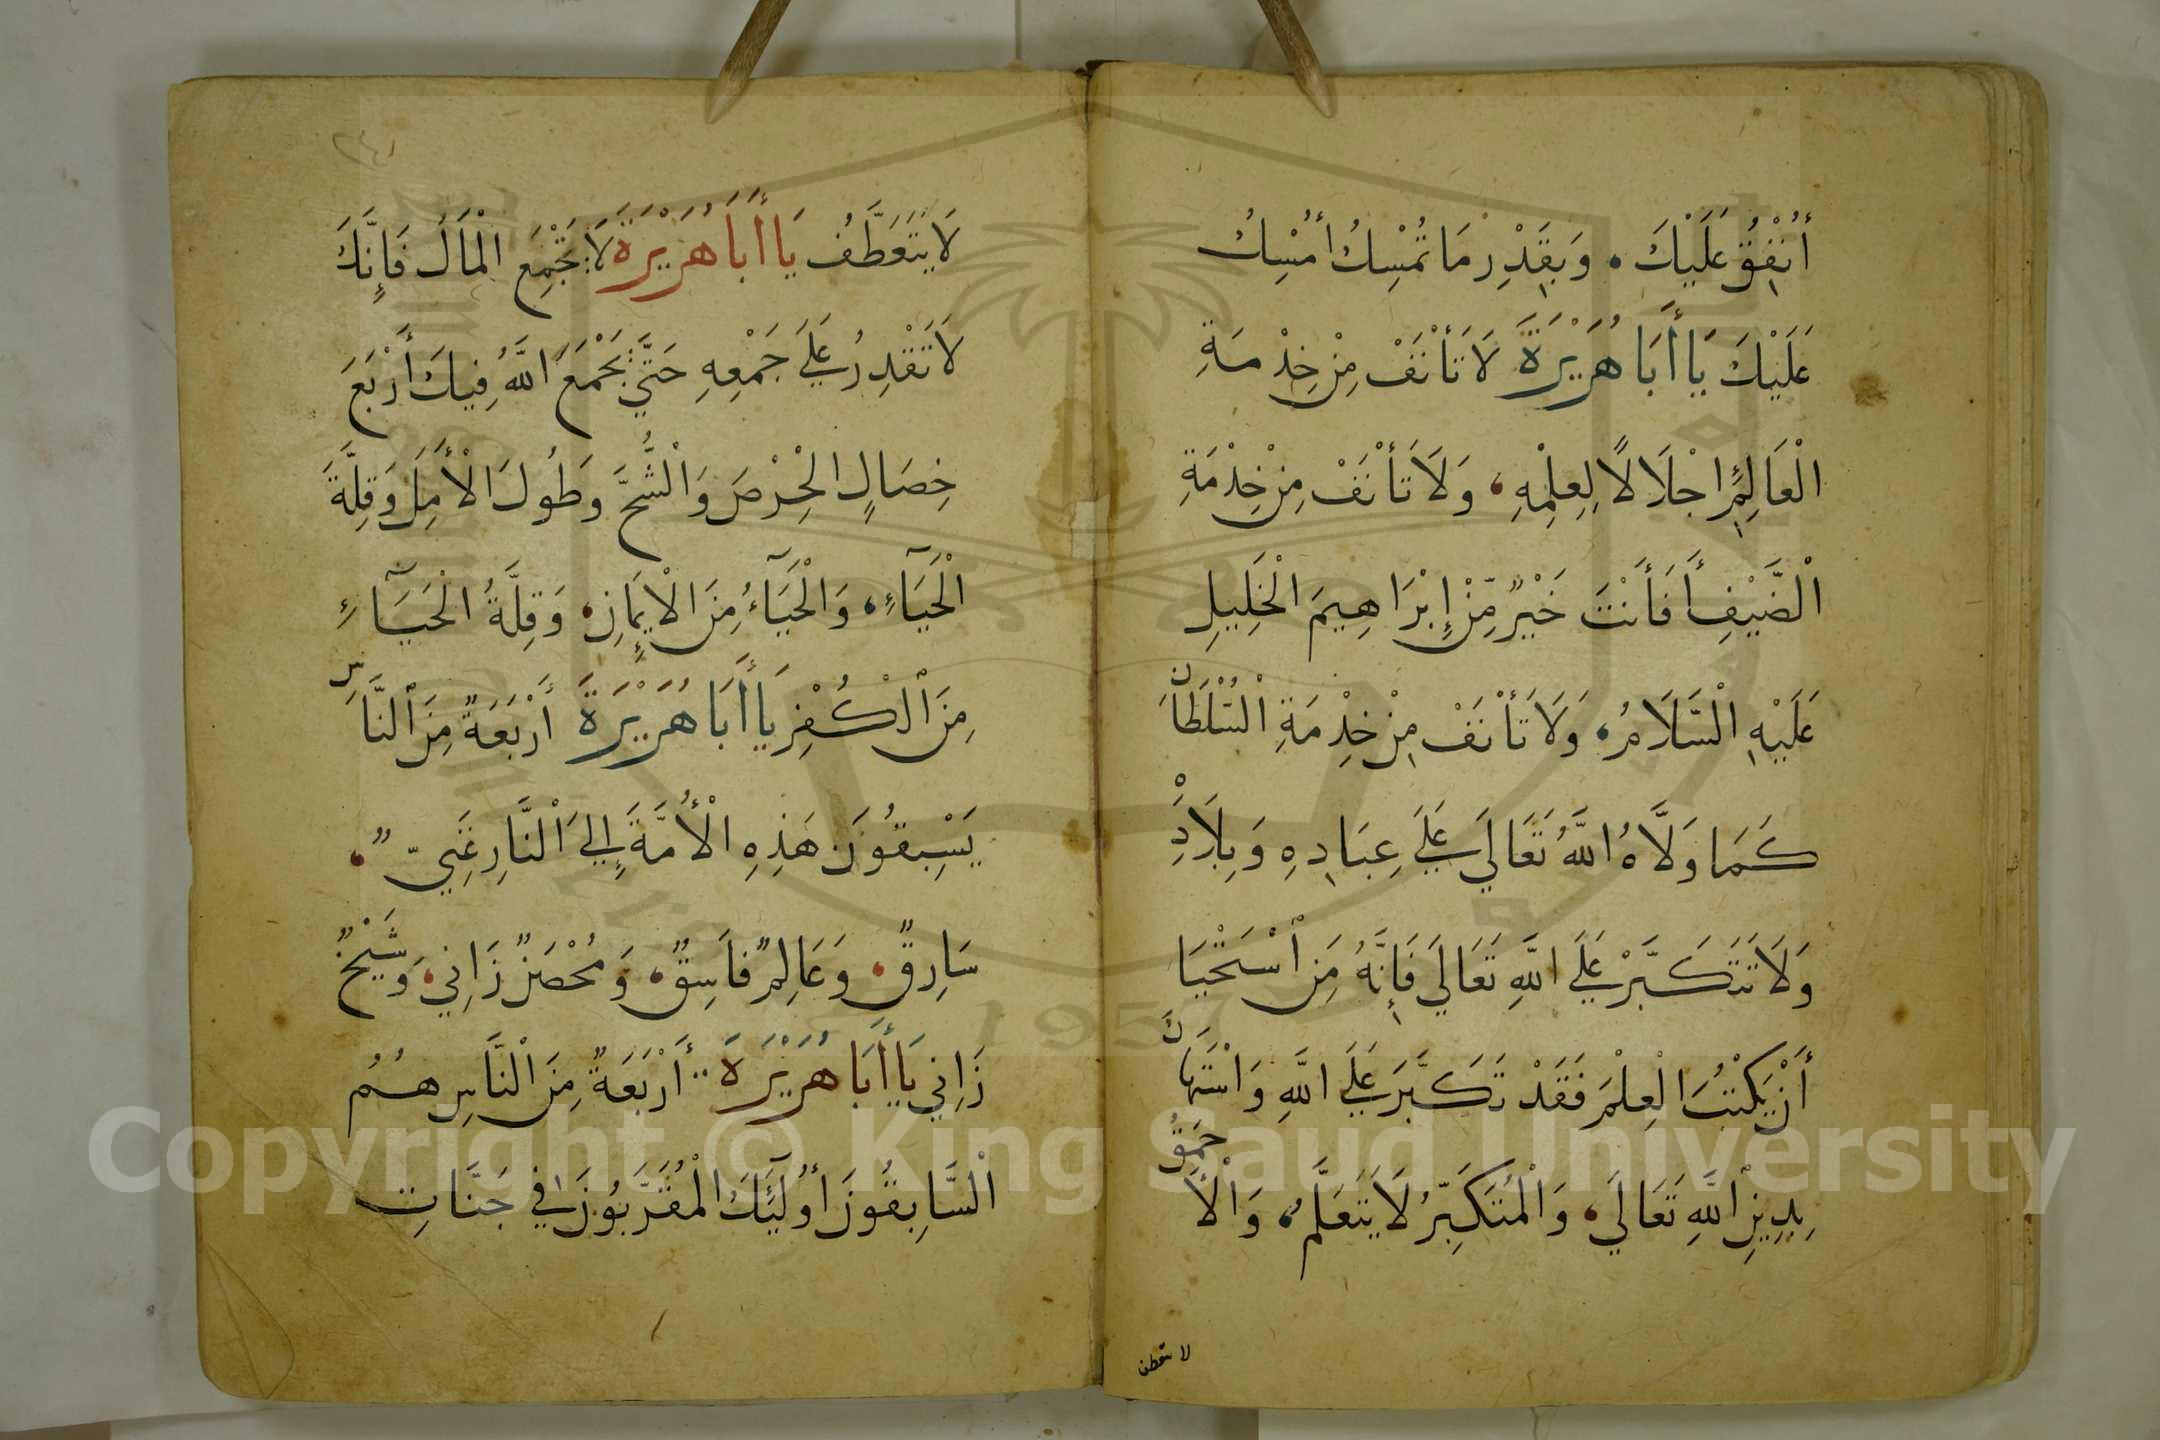 أُنْفِقُ عَلَيْكَ ۰ وَبِقَدْرِ مَا تُمْسِكُ أُمْسِكُ
عَلَيْكَ يَا أَبَا هُرَيْرَةَ لَا تَأْنَفْ مِنْ خِدْمَةِ
الْعَالِمِ اجْلَالًا لِعِلْمِهِ ۰ وَلَا تَأْنَفْ مِنْ خِدْمَةِ
الْضَّيْفِ أَفَأَنْتَ خَيْرٌ مِّنْ إِبْرَاهِيمَ الْخَلِيلِ
عَلَيْهِ الْسَّلَامُ ۰ وَلَا تَأْنَفْ مِنْ خِدْمَةِ الْسُّلْطَانِ
كَمَا وَلَّاهُ اللَّهُ تَعَالَي عَلَي عِبَادِهِ وَبِلَادِهِ
وَلَا تَتَكَبَّرْ عَلَي اللَّهِ تَعَالَي فَإِنَّهُ مَنِ اسْتَحْيَا
أَنْ يَكْتُبَ الْعِلْمَ فَقَدْ تَكَبَّرَ عَلَي اللَّهِ وَاسْتَهَانَ
بِدِينِ اللَّهِ تَعَالَي ۰ وَالْمُتَكَبِّرُ لَا يَتَعَلَّمُ ۰ وَالْأَحْمَقُ
لا يتعطف
لَا يَتَعَطَّفُ يَا أَبَا هُرَيْرَةَ لَا تَجْمَعِ الْمَالَ فَإِنَّكَ
لَا تَقْدِرُ عَلَي جَمْعِهِ حَتَّي يَجْمَعَ اللَّهُ فِيكَ أَرْبَعَ
خِصَالٍ الْحِرْصَ وَالْشُّحَّ وَطُولَ الْأَمَلِ وَقِلَّةَ
الْحَيَآءِ ۰ وَالْحَيَآءُ مِنَ الْإِيمَانِ ۰ وَقِلَّةُ الْحَيَآءِ
مِنَ الْكُفْرِ يَا أَبَا هُرَيْرَةَ أَرْبَعَةٌ مِنَ الْنَّاسِ
يَسْبِقُونَ هَذِهِ الْأُمَّةَ إِلَي الْنَّارِ غَنِيٌّ ۰
سَارِقٌ ۰ وَعَالِمٌ فَاسِقٌ ۰ وَمُحْصَنٌ زَانِي ۰ وَشَيْخٌ
زَانِي يَا أَبَا هُرَيْرَةَ أَرْبَعَةٌ مِنَ الْنَّاسِ هُمُ
الْسَّابِقُونَ أُولَئِكَ الْمُقَرَّبُونَ فِي جَنَّاتِ
Copyright © King Saud University
1957